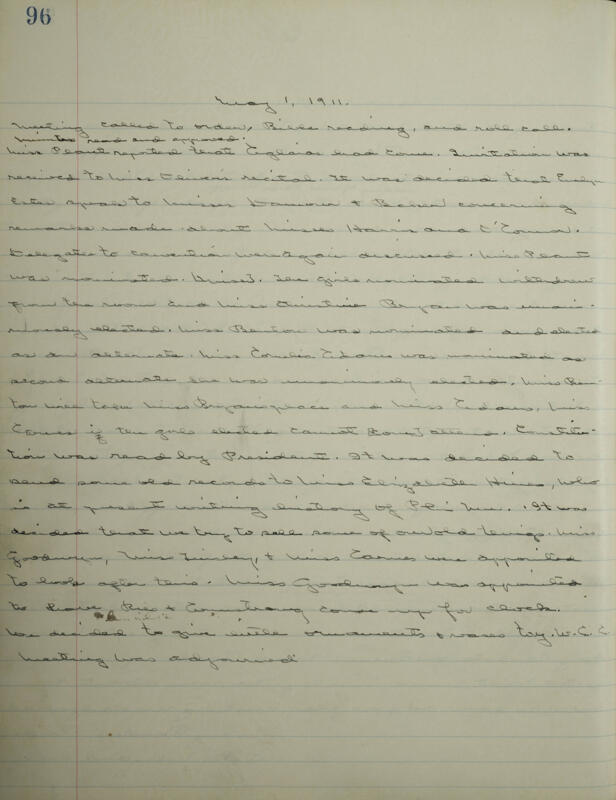 96
May 1, 1911.
Meeting called to order, Bible reading, and roll call.
Minutes read and approved.
Miss Plant reported that had come. Invitation was
received to Miss recital. It was decided that
speak to Misses & concerning
remarks made about Misses Harris and O'Connor.
Delegate to convention were again discussed. Miss Plant
was nominated. The girls nominated withdrew
from the room and Miss Bryan was unani-
mously elected. Miss Benton was nominated and elected
as an alternate. Miss Cornelia was nominated as
second alternate she was unanimously elected. Miss Ben-
ton will take Miss Bryan's place and Miss Miss
if the girls elected cannot attend. Constitu-
tion was read by President. It was decided to
send some old records to Miss Elizabeth Hines, who
is at present writing history of Phi Mu. It was
decided that we try to sell some of our old things. Miss
Goodwyn, Miss & Miss were appointed
to look after this. Miss Goodwyn was appointed
to have & Armstrong come up for clock.
We decided to give little ornaments & vases to Y.W.C.
Meeting was adjourned